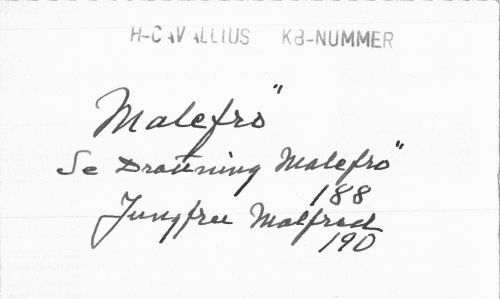 H-CAVALLIUS KB-NUMMER
Malefrö"
Se Drottning Malefrö"
188
Jungfru Malfred
190